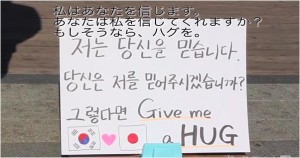 私はあなたを信じます。
あなたは私を信じてくれますか？
もしそうなら、ハグを。
저는 당신을 믿습니다.
당신은 저를 믿어주시겠습니까?
그렇다면 Give me
a HUG